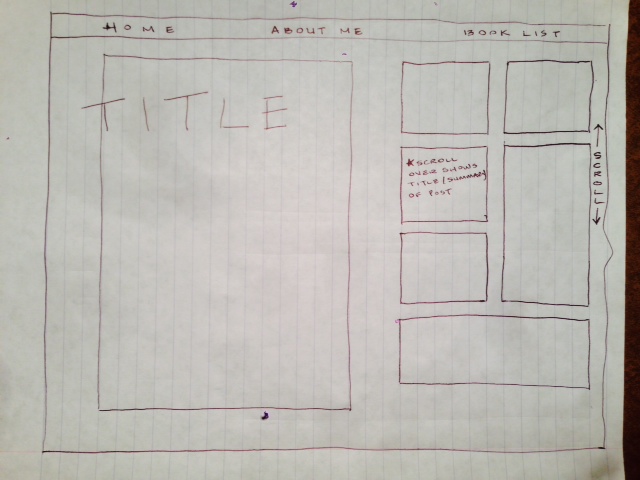 HOME ABOUT ME BOOK LIST
TITLE
*SCROLL
OVER SHOWS
TITLE/SUMMARY
OF POST
SCROLL